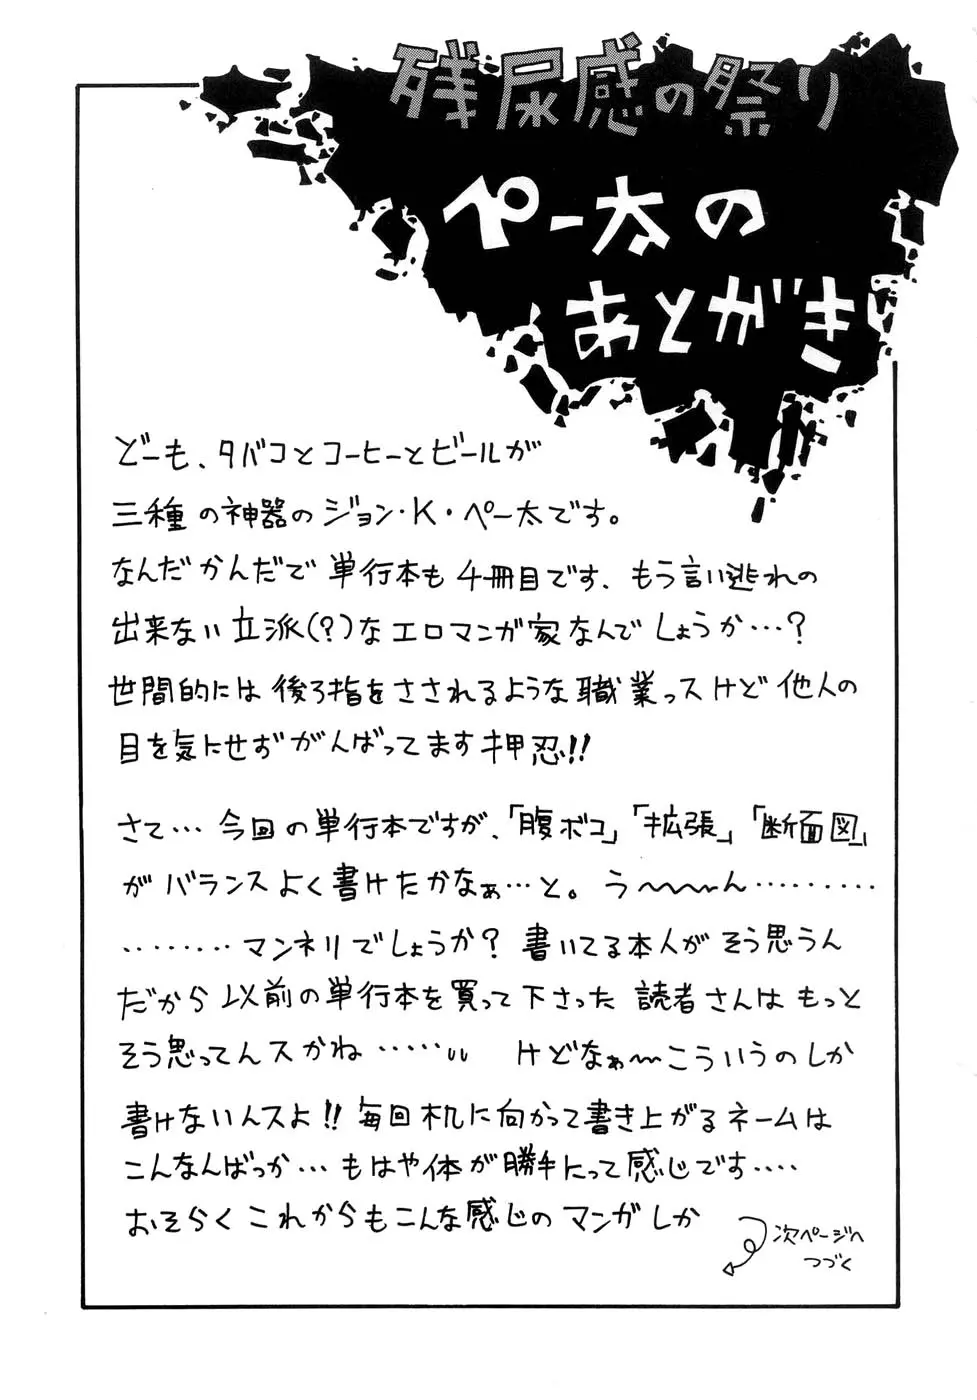 残尿感の祭り
ペー太の
あとがき
どーも、タバコとコーヒーとビールが
三種の神器のジョン・K・ペー太です。
なんだかんだで単行本も4冊目です、もう言い逃れの
出来ない立派(?)なエロマンガ家なんでしょうか…?
世間的には後ろ指をさされるような職業っスけど他人の
目を気にせずがんばってます押忍!!
さて…今回の単行本ですが、「腹ボコ」「拡張」「断面図」
がバランスよく書けたかなぁ…と。う〜〜〜ん………
………マンネリでしょうか?書いてる本人がそう思うん
だから以前の単行本を買って下さった読者さんはもっと
そう思ってんスかね……けどなぁ〜こういうのしか
書けないんスよ!!毎回机に向かって書き上がるネームは
こんなんばっか…もはや体が勝手にって感じです‥‥
おそらくこれからもこんな感じのマンガしか
次ページへ
つづく